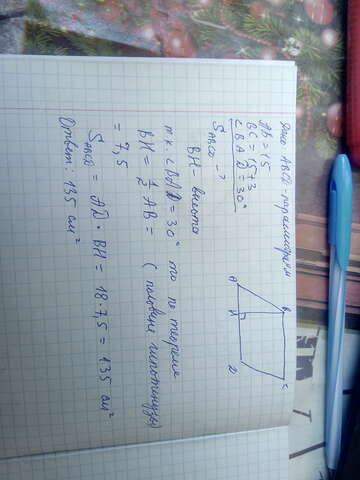 Дано: ABCD - параллелограмм
AB = 15
BC = 15+3
∠BAD = 30°
SABCD - ?
BH - высота
т.к. ∠BAD = 30° то по теореме
BH = 1/2 AB = (половине гипотенузы)
= 7,5
SABCD = AD · BH = 18 · 7,5 = 135 см²
Ответ: 135 см²
A
B
C
H
D